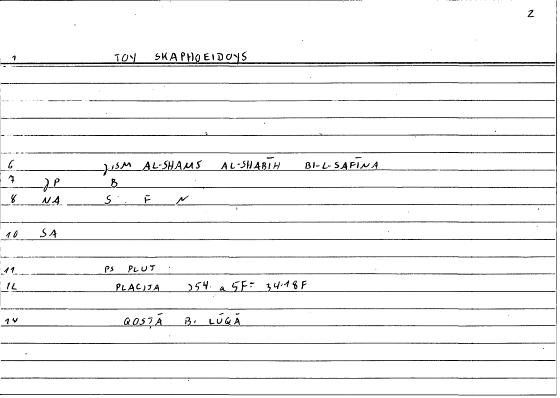 2
1 TOY SKAPHOEIDOYS
6 JISM AL-SHAMS AL-SHABĪH BI-L-SAFĪNA
7 JP B
8 NA S F N
10 SA
11 PS PLUT
12 PLACITA 354. a 5F= 34.18F
14 QOSṬĀ B. LŪQĀ